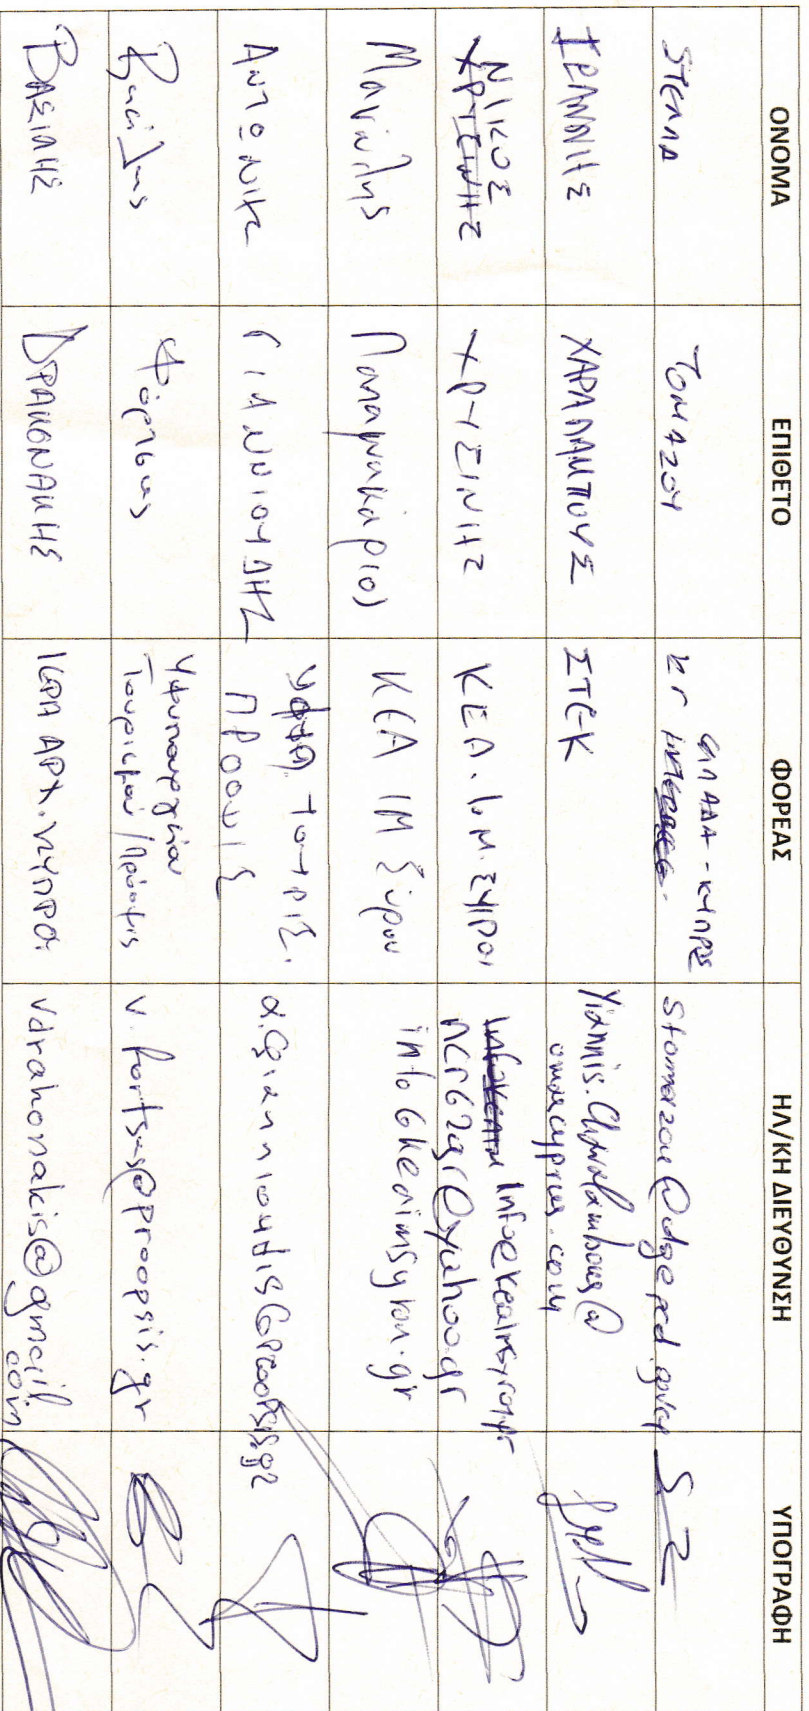 ΟΝΟΜΑ ΕΠΙΘΕΤΟ ΦΟΡΕΑΣ ΗΛ/ΚΗ ΔΙΕΥΘΥΝΣΗ ΥΠΟΓΡΑΦΗ
Στέλλα ΤΟΜΑΖΟΥ ΕΛΛΑΔΑ - ΚΥΠΡΟΣ stomazou@dgepcd.gov.cy
ΙΩΑΝΝΗΣ ΧΑΡΑΛΑΜΠΟΥΣ ΣΤΕΚ Yiannis.Charalambous@
cyprus.com
ΝΙΚΟΣ
ΧΡΥΣΙΝΗΣ ΧΡΥΣΙΝΗΣ ΚΕΑ. Ι.Μ. ΣΥΡΟΥ info@keaimsyrou.gr
ncr62gr@yahoo.gr
Μανώλης Παπαμακάριος ΚΕΑ ΙΜ Σύρου info@keaimsyrou.gr
Αντώνης ΓΙΑΝΝΙΟΥΔΗΣ Υφυπ. Τουρισ.
ΠΡΟΟΨΙΣ a.giannioudis@proopsis.gr
Βασίλης Φόρτσας Υφυπουργείο
Τουρισμού/Πρόοψις v.fortsas@proopsis.gr
ΒΑΣΙΛΗΣ ΔΡΑΚΩΝΑΚΗΣ ΙΕΡΑ ΑΡΧ. ΚΥΠΡΟΥ vdrakonakis@gmail
com